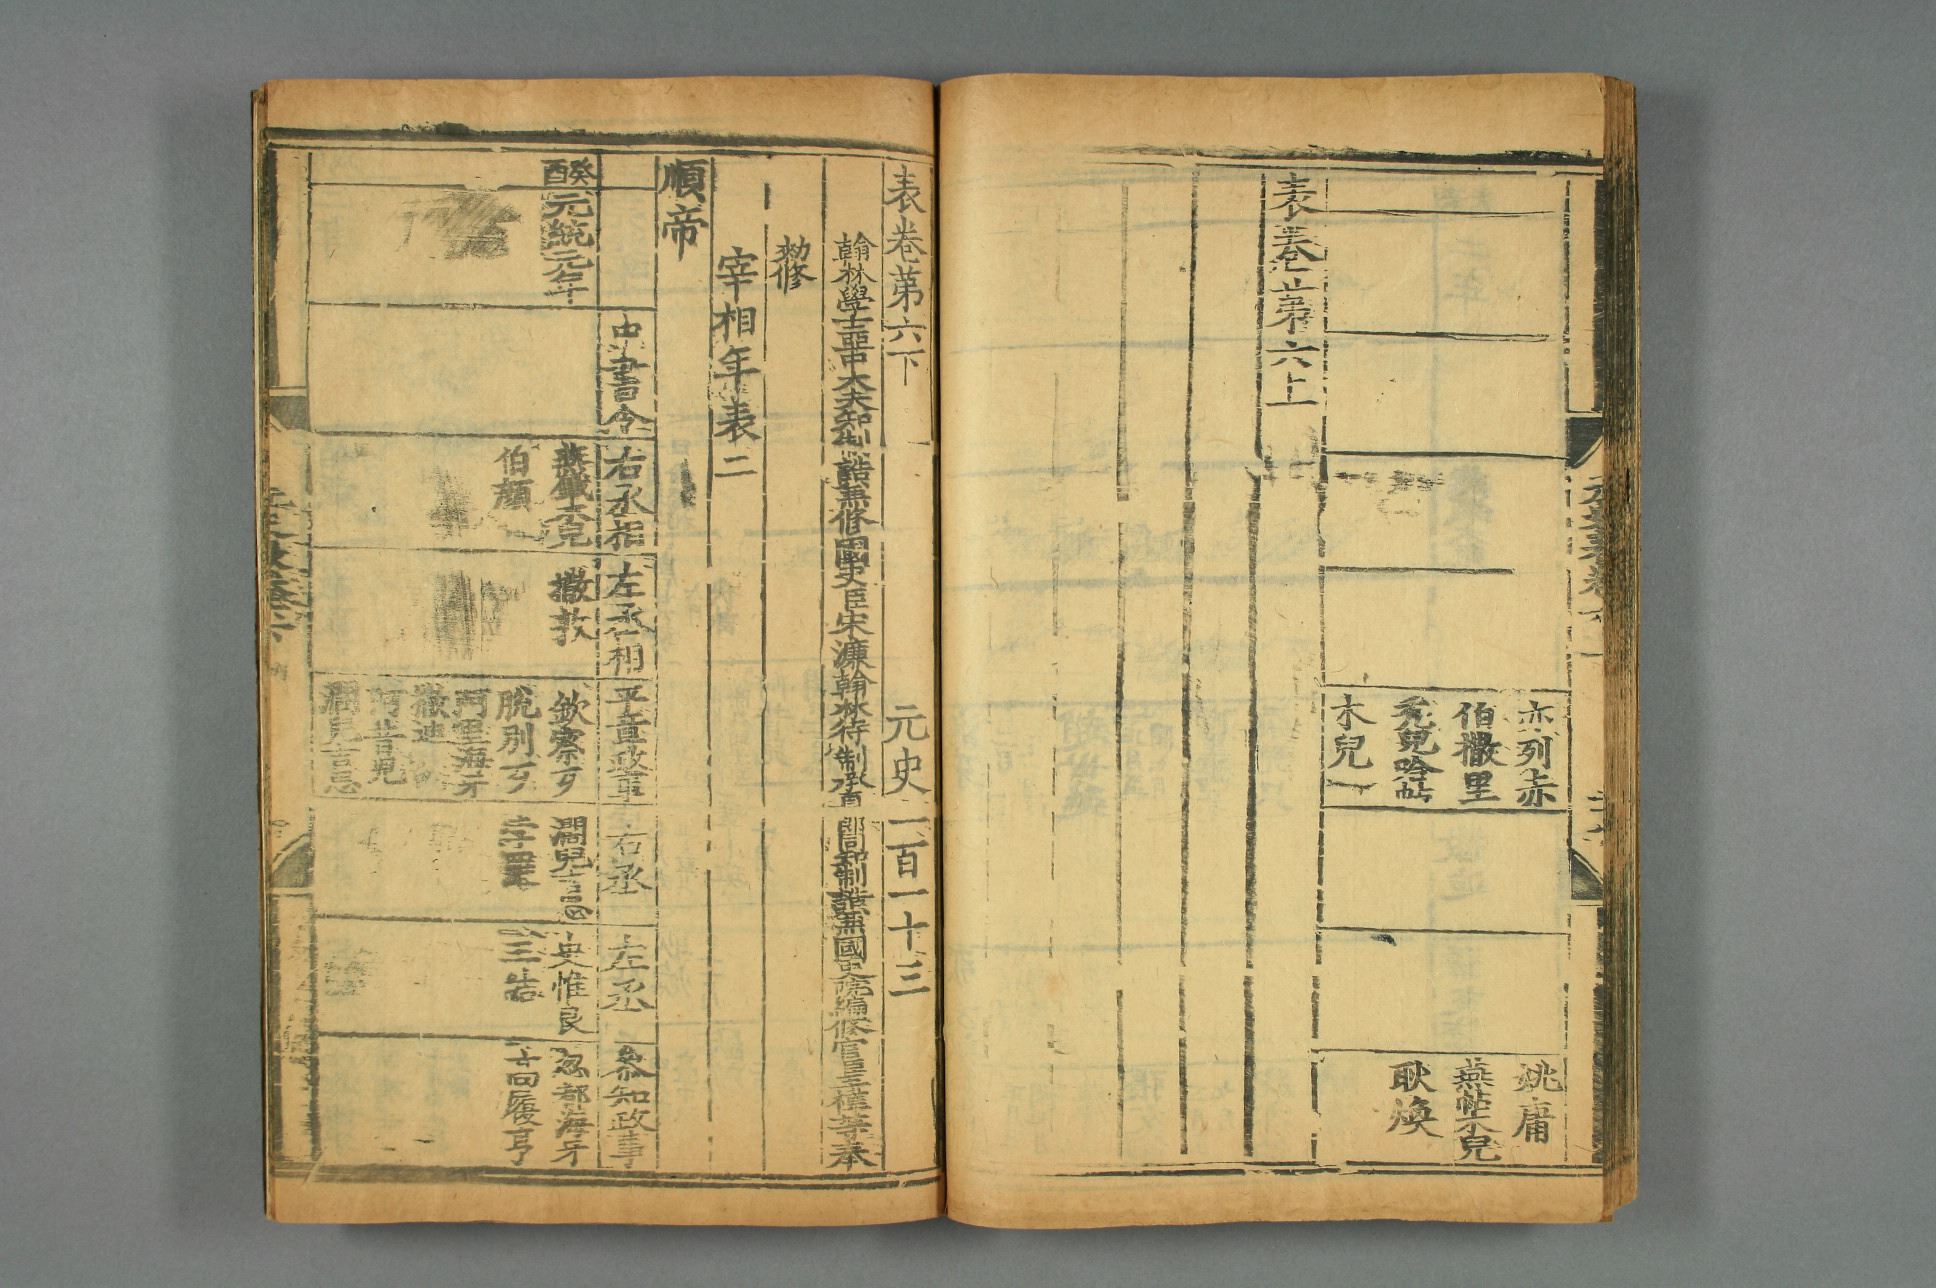 亦列赤
伯撒里
禿兒哈帖
木兒
姚庸
燕帖木兒
耿煥
表卷第六上
表卷第六下
元史一百一十三
翰林學士亞中大夫知制誥兼修國史臣宋濂翰林待制承直郎同知制誥兼國史院編修官臣王禕等奉
勑修
宰相年表二
順帝
中書令
右丞相
左丞相
平章政事
右丞
左丞
參知政事
癸酉
元統元年
燕鐵木兒
伯顏
撒敦
欽察台
脫別台
阿里海牙
撒迪
阿昔兒
闊兒吉思
闊兒吉思
孛羅
史惟良
王結
忽都海牙
高履亨